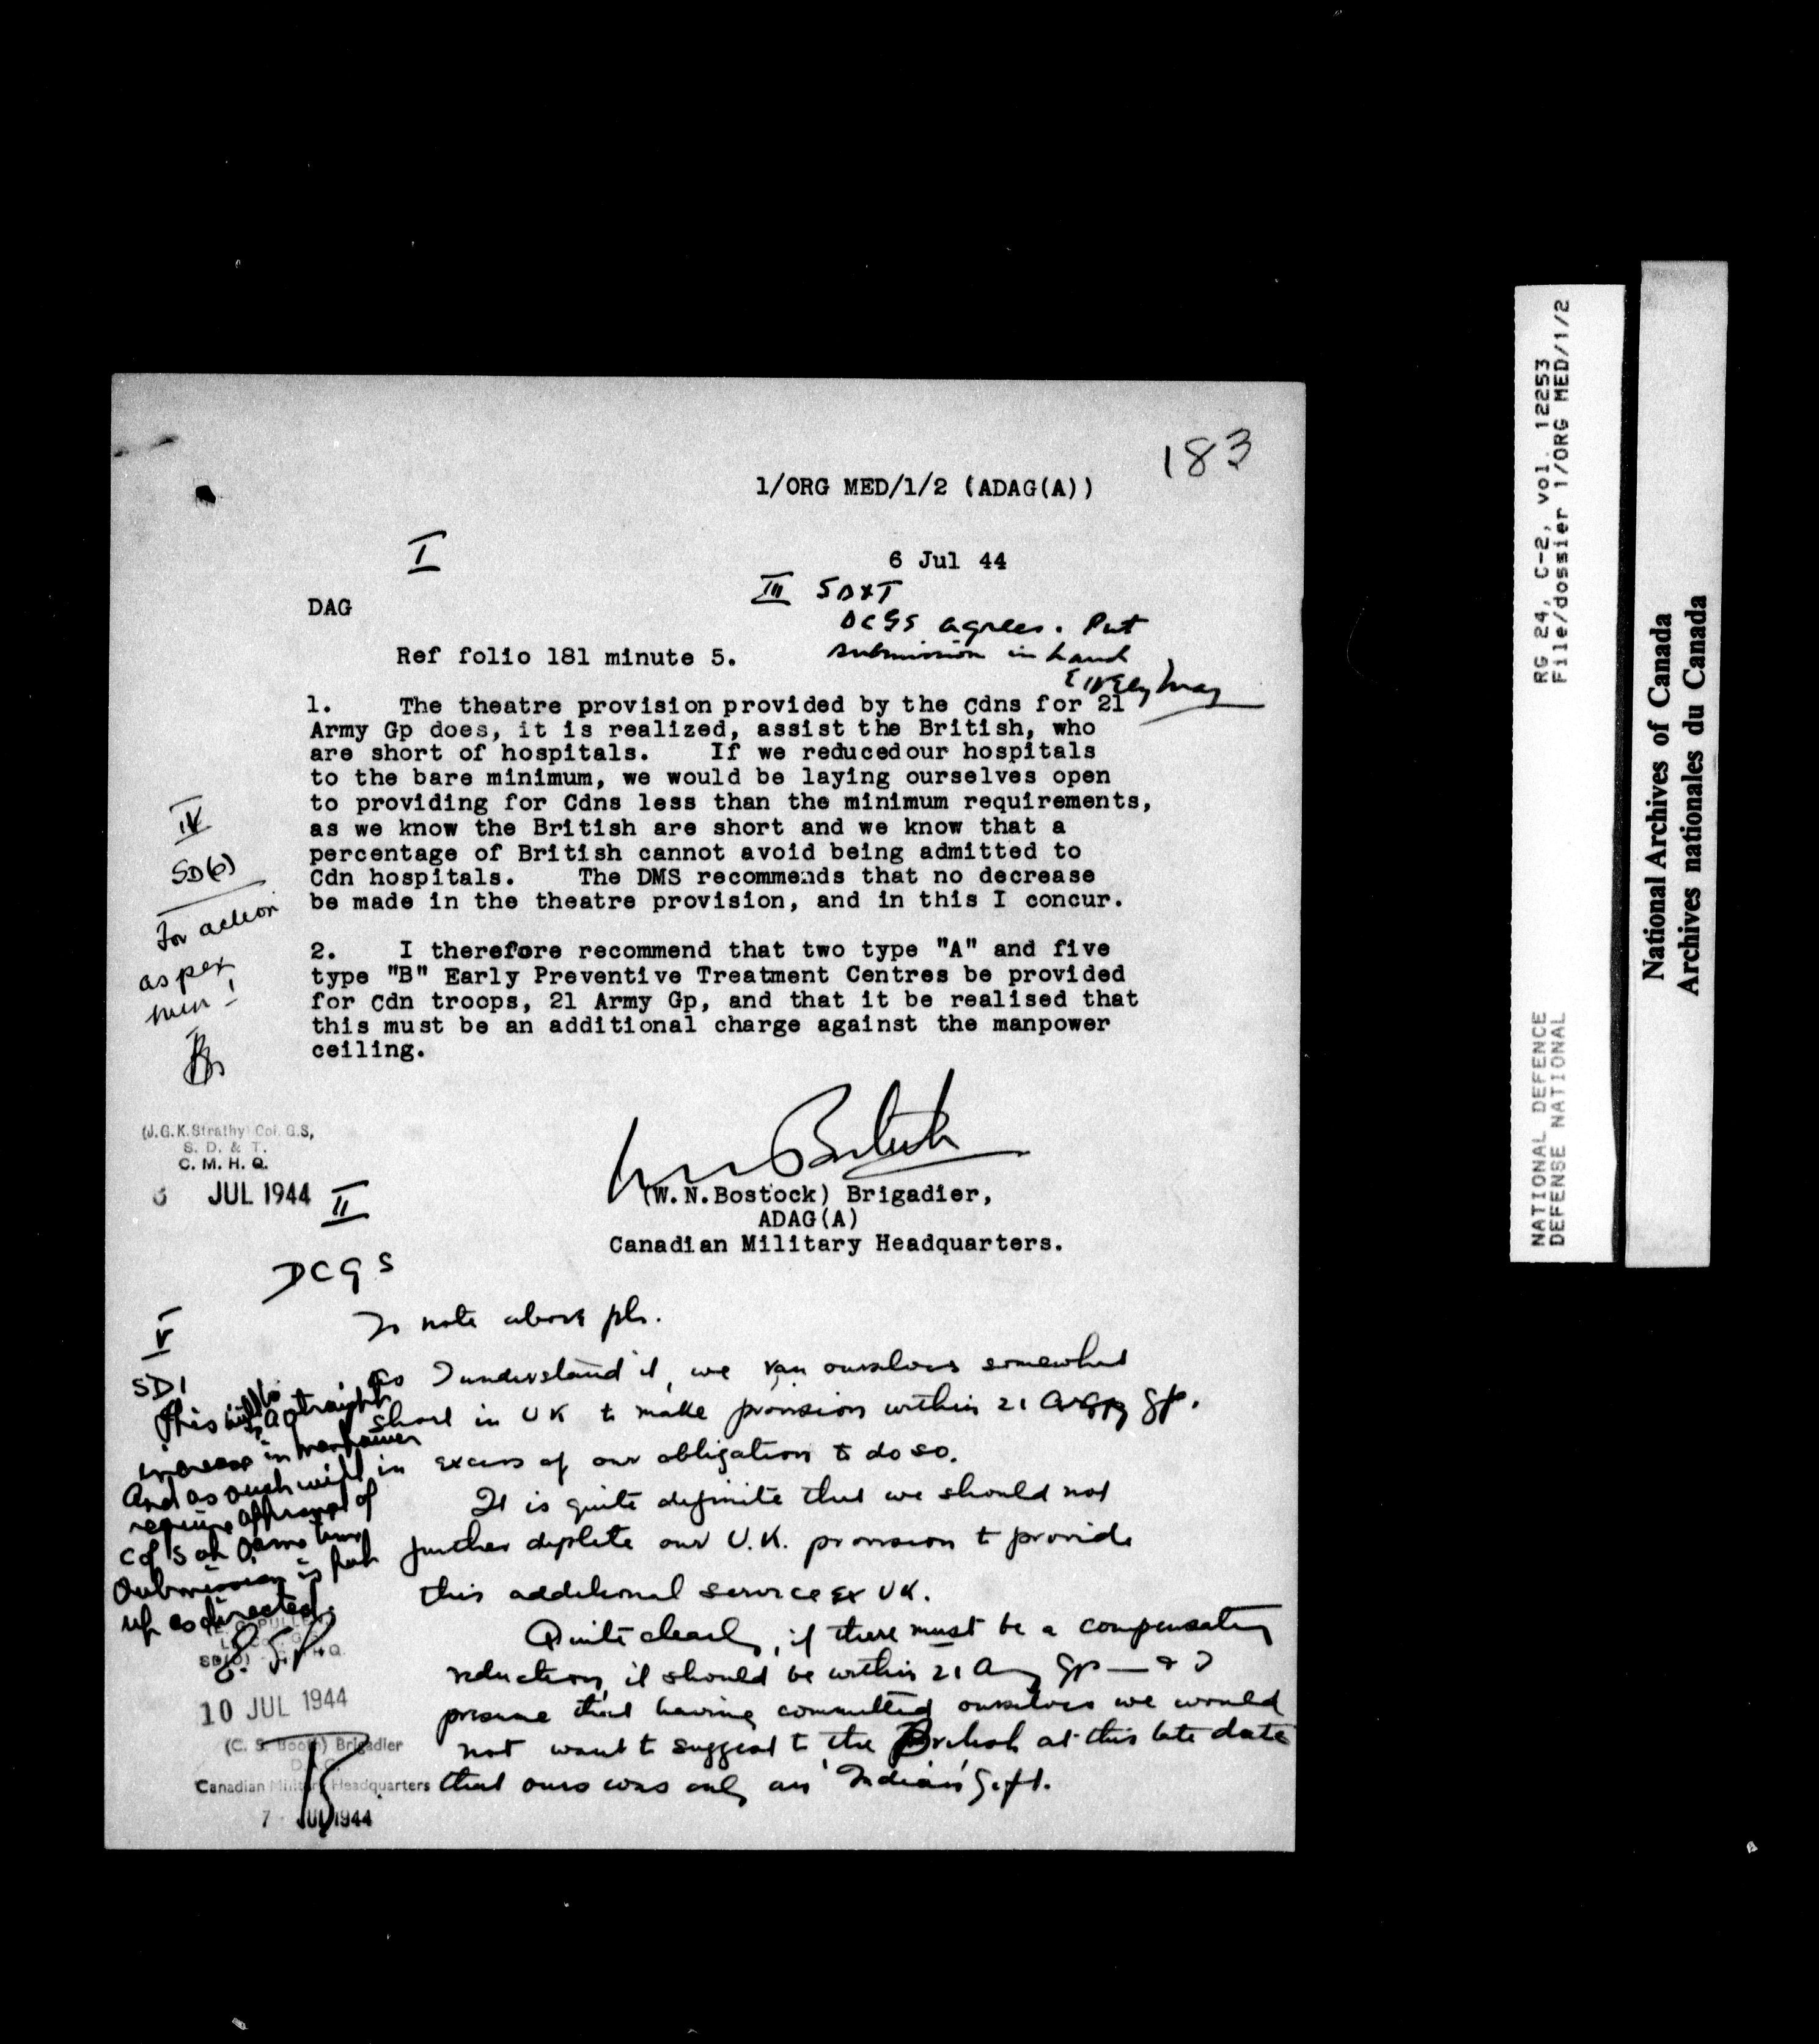 183
1/ORG MED/1/2 (ADAG(A))
I
6 Jul 44
DAG
III SD&T
DCGS agrees. Put
submission in hand
Ref folio 181 minute 5.
1. The theatre provision provided by the Cdns for 21
Army Gp does, it is realized, assist the British, who
are short of hospitals. If we reducedour hospitals
to the bare minimum, we would be laying ourselves open
to providing for Cdns less than the minimum requirements,
as we know the British are short and we know that a
percentage of British cannot avoid being admitted to
Cdn hospitals. The DMS recommends that no decrease
be made in the theatre provision, and in this I concur.
2. I therefore recommend that two type "A" and five
type "B" Early Preventive Treatment Centres be provided
for Cdn troops, 21 Army Gp, and that it be realised that
this must be an additional charge against the manpower
ceiling.
(W.N.Bostock) Brigadier,
ADAG(A)
Canadian Military Headquarters.
IV
SD(6)
for action
as per
min I
(J.G.K.Strathy) Col. G.S,
S. D. & T.
C. M. H. Q.
6 JUL 1944
II
DCGS
To note above pls.
As I understand it, we ran ourselves somewhat
short in UK to make provision within 21 Army Gp.
in excess of our obligation to do so.
It is quite definite that we should not
further deplete our U.K. provision to provide
this additional service ex UK.
Quite clearly, if there must be a compensating
reduction, it should be within 21 Army Gp — & I
presume that having committed ourselves we would
not want to suggest to the British at this late date
that ours was only an 'Indian' gift.
(C. S. Booth) Brigadier
D.A.G.
Canadian Military Headquarters
7 JUL 1944
V
SD1
This will be a straight
increase in manpower
and as such will
require approval of
C of S at same time
submission is put
up as directed.
10 JUL 1944
RG 24, C-2, vol. 12253
File/dossier 1/ORG MED/1/2
NATIONAL DEFENCE
DEFENSE NATIONAL
National Archives of Canada
Archives nationales du Canada